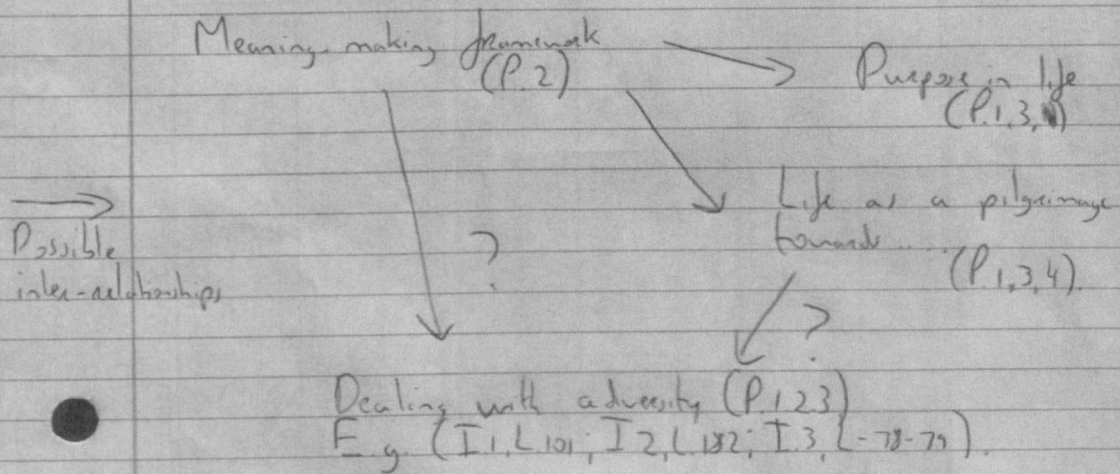 Meaning-making framework
(P.2)
Purpose in life
(P.1,3,)
Life as a pilgrimage
towards....
(P.1,3,4).
Possible
inter-relationships
?
?
Dealing with adversity (P.1 2 3)
E.g. (I1, L.101; I2, L.182; I.3, L-78-79).